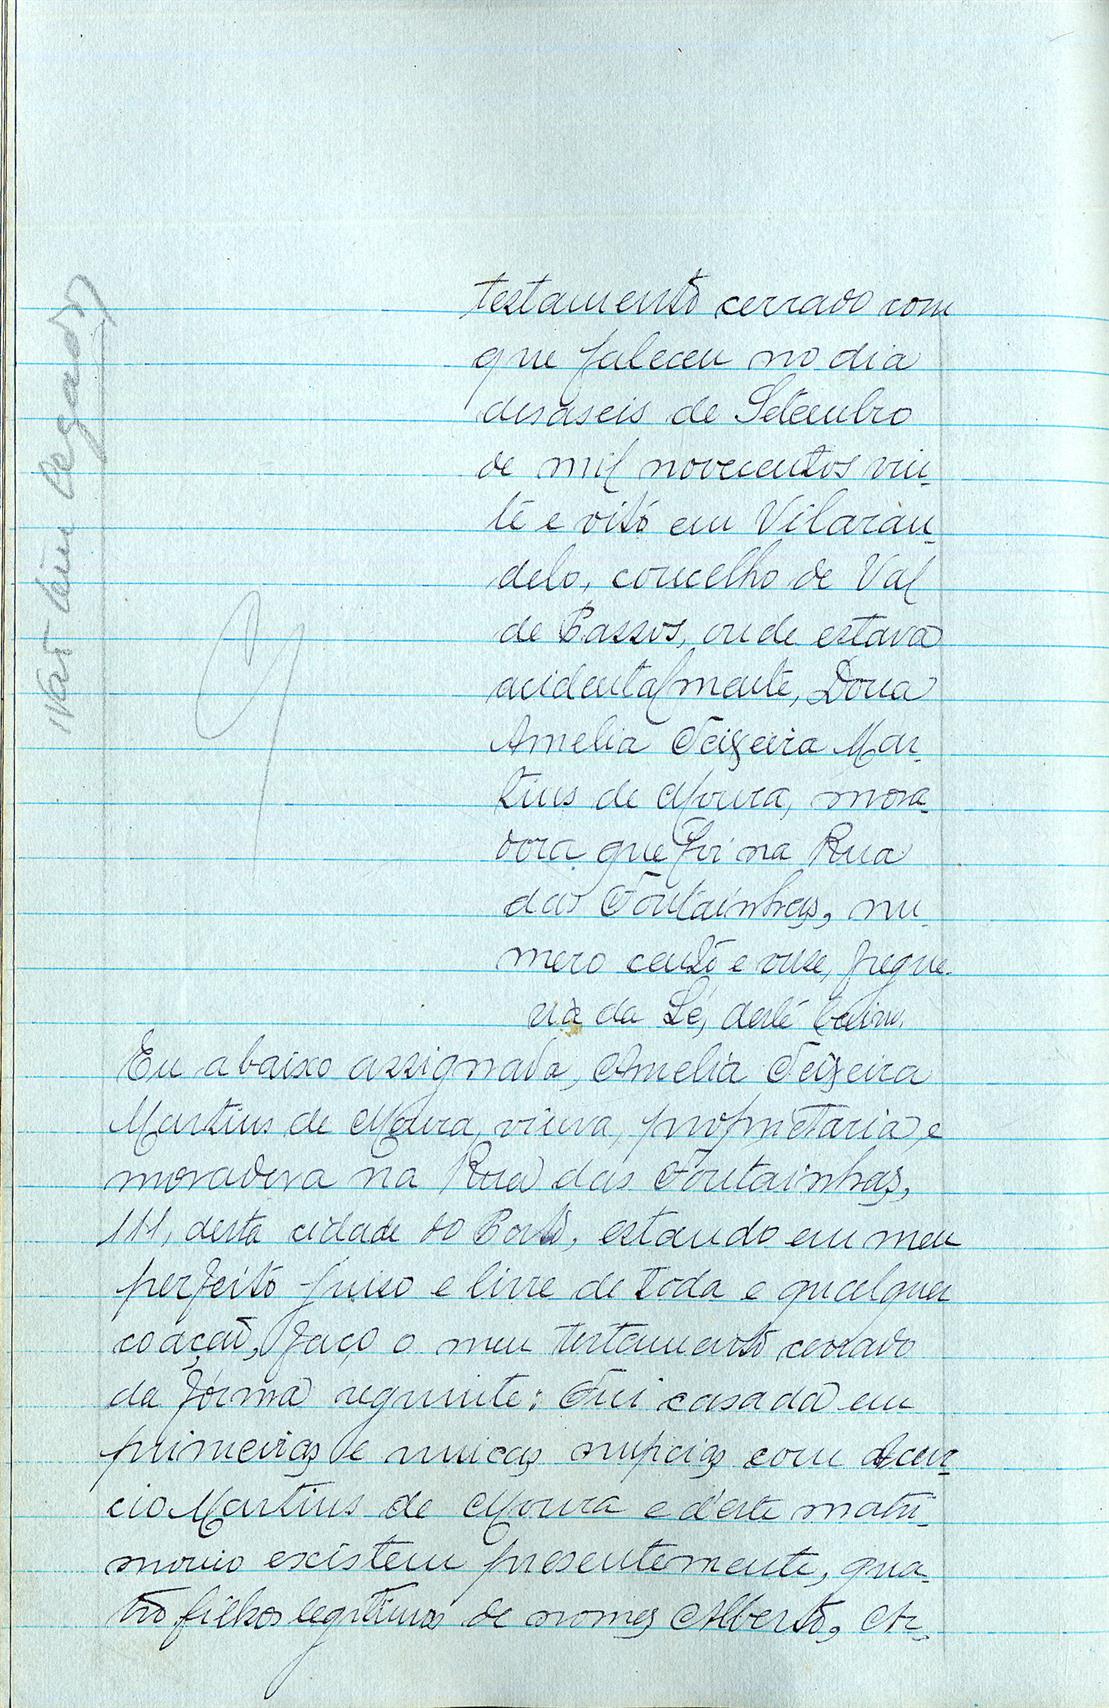 Não tem legados
testamento cerrado com
que faleceu no dia
desaseis de Setembro
de mil novecentos vin-
te e oito em Vilaran-
delo, concelho de Val
de Passos, onde estava
acidentalmente, Dona
Amelia Teixeira Mar-
tins de Moura, mora-
dora que foi na Rua
das Fontainhas, nu-
mero cento e onze, fregue-
sia da Sé, deste bairro.
Eu abaixo assignada, Amelia Teixeira
Martins de Moura, viuva, proprietaria, e
moradora na Rua das Fontainhas,
111, desta cidade do Porto, estando em meu
perfeito juiso e livre de toda e qualquer
coação, faço o meu testamento cerrado
da fórma seguinte: Fui casada em
primeiras e unicas nupcias com Ascen-
cio Martins de Moura e d'este matri-
monio existem presentemente, qua-
tro filhos legitimos de nomes Alberto, Ar-